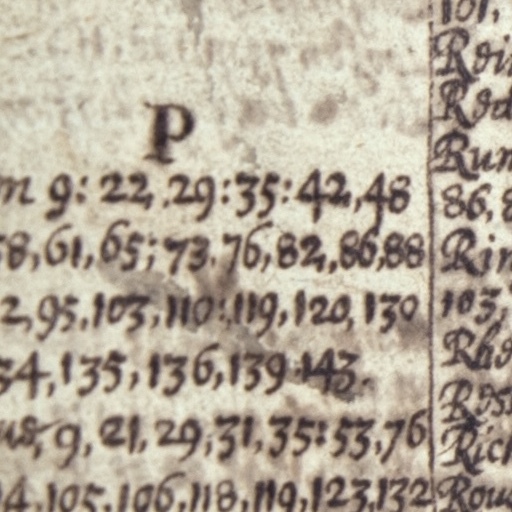 P
m 9: 22, 29: 35: 42, 48
58, 61, 65; 73, 76, 82, 86, 88
2, 95, 103, 110: 119, 120, 130
34, 135, 136, 139 143.
9, 21, 29, 31, 35: 53, 76
4, 105, 106, 118, 119, 123, 132
101,
Run
86, 8
Rin
103,
Rich
Rou